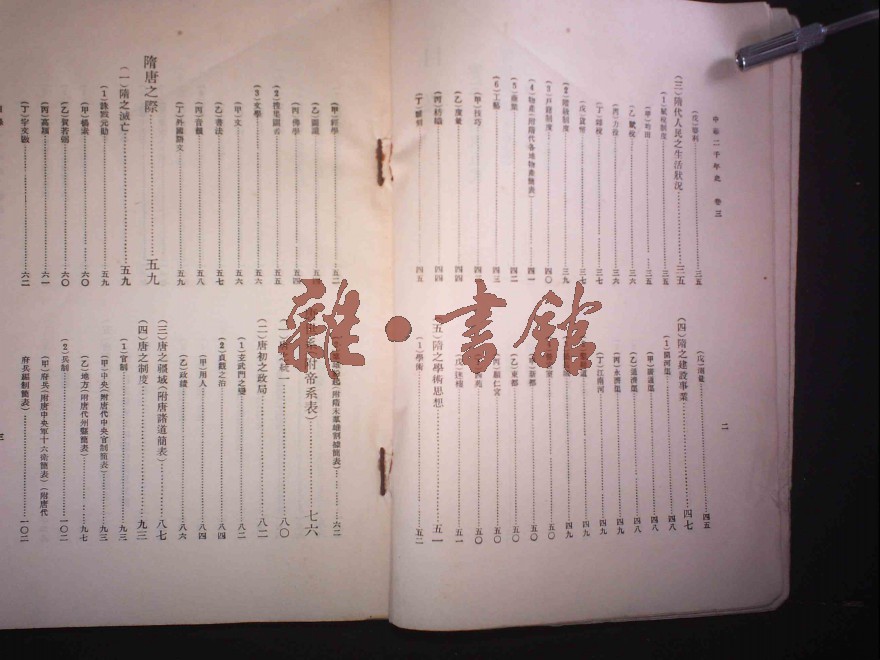 中華二千年史 卷三
二
(三)隋代人民之生活狀況…………三五
(1)賦稅制度…………三五
(甲)均田…………三五
(乙)賦稅…………三六
(丙)力役…………三六
(丁)雜稅…………三七
(戊)貨幣…………三七
(2)階級制度…………三九
(3)戶籍制度…………四〇
(4)物產(附隋代各地物產簡表)…………四一
(5)商業…………四二
(6)工藝…………四三
(甲)技巧…………四四
(乙)度量…………四四
(丙)紡織…………四四
四五
四五
(四)隋之建設事業…………四七
(1)開河渠…………四八
(甲)廣通渠…………四八
(乙)通濟渠…………四八
(丙)永濟渠…………四九
(丁)江南河…………四九
四九
四九
五〇
五〇
(乙)東都…………五〇
顯仁宮…………五〇
五〇
五一
(五)隋之學術思想…………五一
(1)學術…………五二
(甲)經學…………五二
(丙)佛學…………五四
(2)搜集圖書…………五五
(3)文學…………五六
(甲)文…………五六
(乙)書法…………五七
(丙)音韻…………五八
(丁)外國語文…………五九
隋唐之際…………五九
(一)隋之滅亡…………五九
(1)誅戮元勛…………五九
(甲)楊素…………六〇
(乙)賀若弼…………六〇
(丙)高熲…………六一
(丁)宇文㢸…………六二
(附隋末羣雄割據簡表)…………六二
世系附帝系表)…………七六
八〇
(二)唐初之政局…………八二
(1)玄武門之變…………八二
(2)貞觀之治…………八四
(甲)用人…………八四
(乙)政績…………八六
(三)唐之疆域(附唐諸道簡表)…………八七
(四)唐之制度…………九三
(1)官制…………九三
(甲)中央(附唐代中央官制簡表)…………九三
(乙)地方(附唐代州縣簡表)…………九七
(2)兵制…………一〇二
(甲)府兵(附唐中央軍十六衛簡表)(附唐代
府兵編制簡表)…………一〇二
三
雜·書館